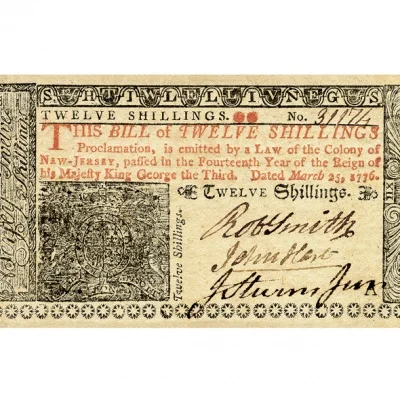 SHTIWLELLIVNEGS
TWELVE SHILLINGS. No.
THIS BILL of TWELVE SHILLINGS
Proclamation, is emitted by a LAW of the Colony of
NEW-JERSEY, passed in the Fourteenth Year of the Reign of
his Majesty King George the Third. Dated March 25, 1776.
TWELVE Shillings.
Twelve Shillings.
Robt Smith
John Hart
J Stevens Jun